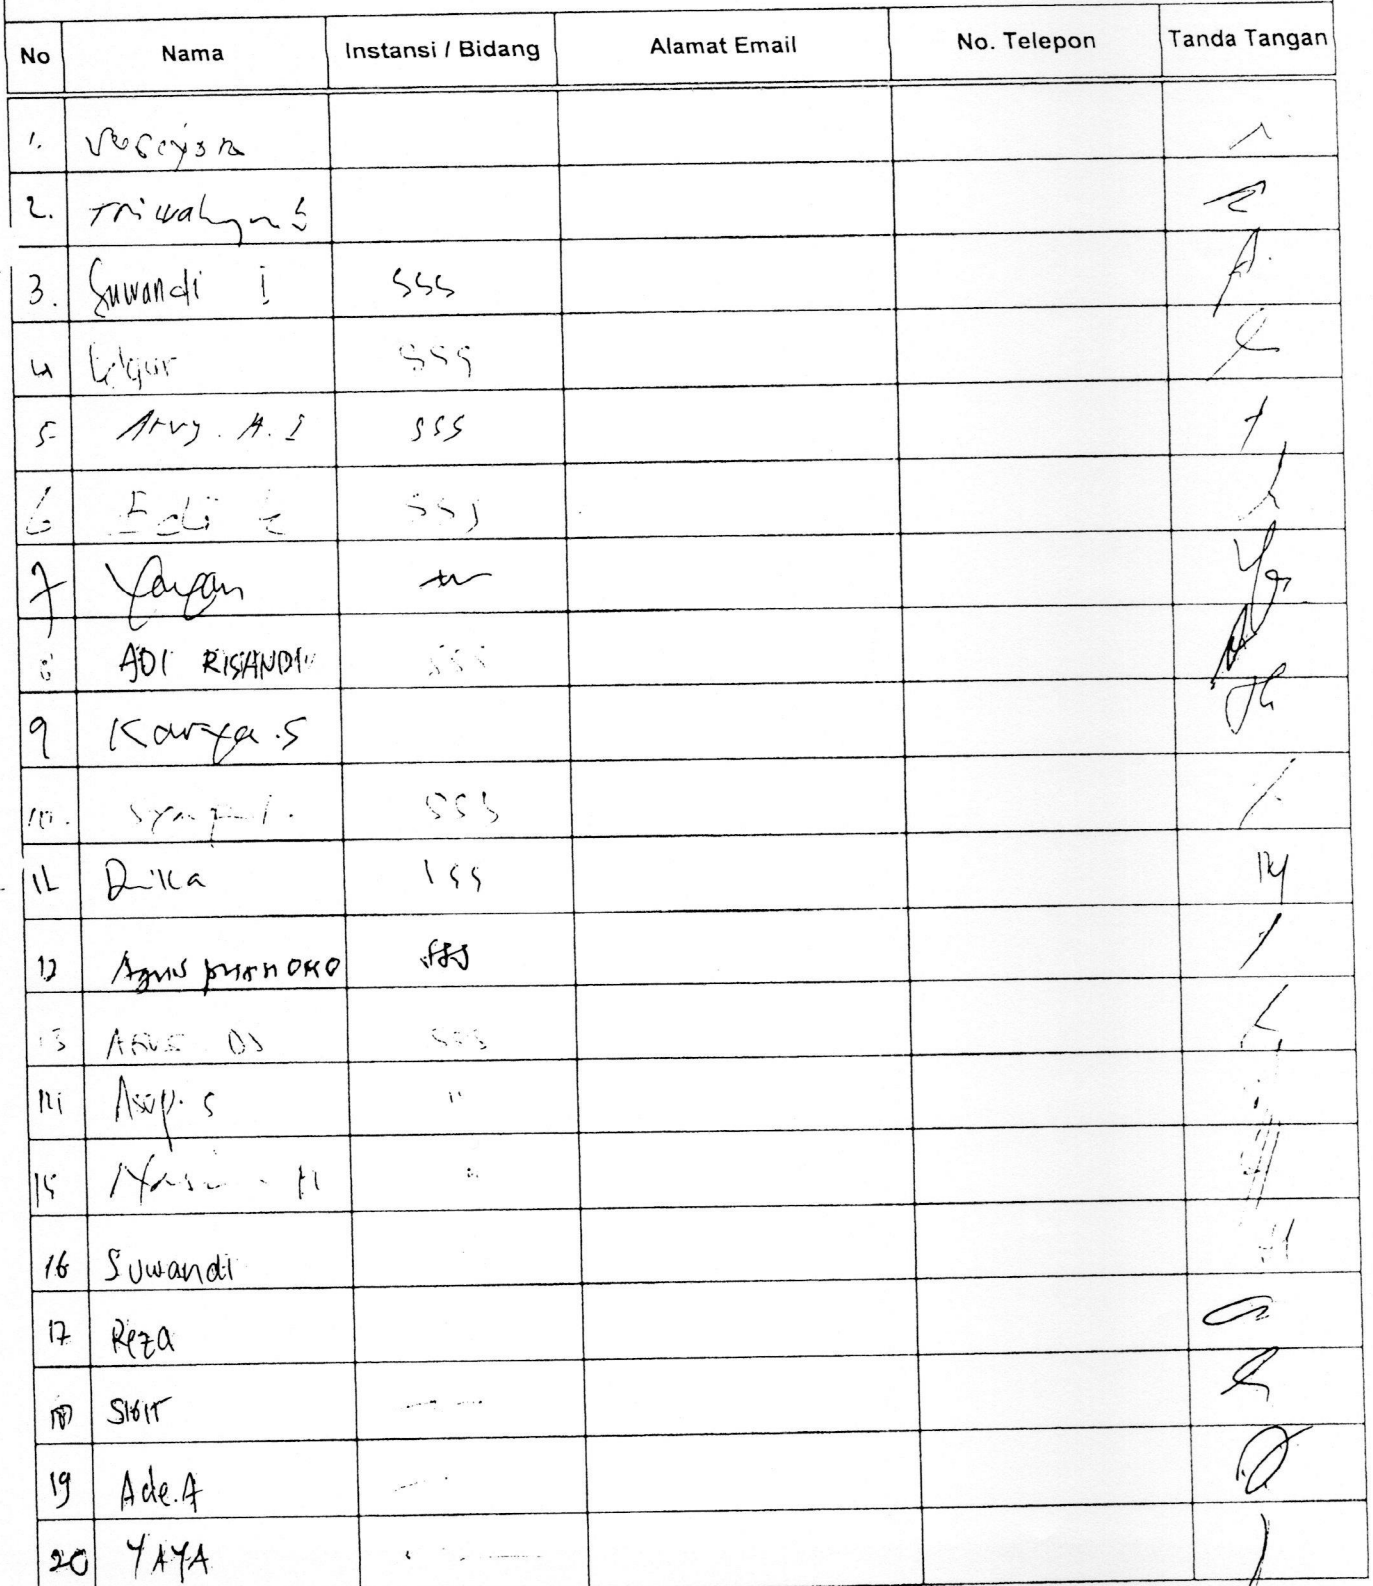 No Nama Instansi / Bidang Alamat Email No. Telepon Tanda Tangan
1.
2. Triwahyu S
3. Suwandi I SSS
4 SSS
5 Arvy. A. I SSS
6 Edi SSS
7 Yayan
8 ADI RISANDI SSS
9 Karya.S
10. SSS
11 Dika SSS
12 Agus purnomo SSS
13 AGUS DJ SSS
14 Asep. S "
15 "
16 Suwandi
17 Reza
18 SIGIT
19 Ade.A
20 YAYA